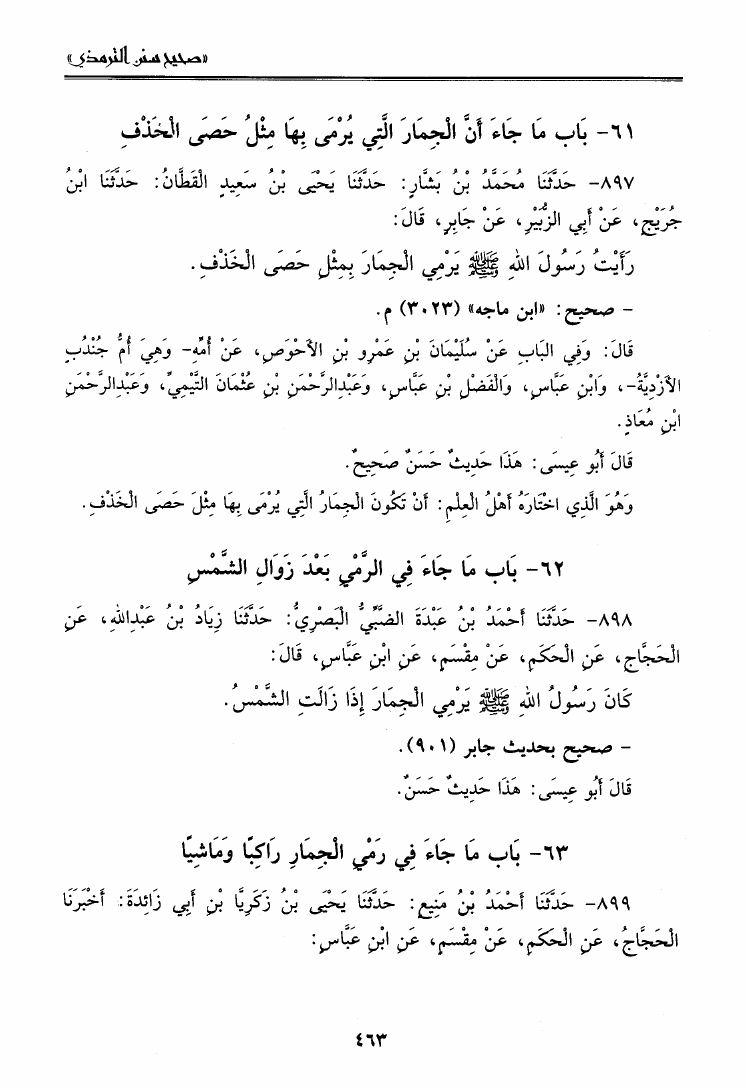 «صحيح سنن الترمذي»
٦١- بَاب مَا جَاءَ أَنَّ الْجِمَارَ الَّتِي يُرْمَى بِهَا مِثْلُ حَصَى الْخَذْفِ
٨٩٧- حَدَّثَنَا مُحَمَّدُ بْنُ بَشَّارٍ: حَدَّثَنَا يَحْيَى بْنُ سَعِيدٍ الْقَطَّانُ: حَدَّثَنَا ابْنُ
جُرَيْجٍ، عَنْ أَبِي الزُّبَيْرِ، عَنْ جَابِرٍ، قَالَ:
رَأَيْتُ رَسُولَ اللهِ ﷺ يَرْمِي الْجِمَارَ بِمِثْلِ حَصَى الْخَذْفِ.
- صحيح: «ابن ماجه» (٣٠٢٣) م.
قَالَ: وَفِي البَابِ عَنْ سُلَيْمَانَ بْنِ عَمْرِو بْنِ الأَحْوَصِ، عَنْ أُمِّهِ- وَهِيَ أُمُّ جُنْدُبٍ
الأَزْدِيَّةُ-، وَابْنِ عَبَّاسٍ، وَالْفَضْلِ بْنِ عَبَّاسٍ، وَعَبْدِالرَّحْمَنِ بْنِ عُثْمَانَ التَّيْمِيِّ، وَعَبْدِالرَّحْمَنِ
ابْنِ مُعَاذٍ.
قَالَ أَبُو عِيسَى: هَذَا حَدِيثٌ حَسَنٌ صَحِيحٌ.
وَهُوَ الَّذِي اخْتَارَهُ أَهْلُ الْعِلْمِ: أَنْ تَكُونَ الْجِمَارُ الَّتِي يُرْمَى بِهَا مِثْلَ حَصَى الْخَذْفِ.
٦٢- بَاب مَا جَاءَ فِي الرَّمْيِ بَعْدَ زَوَالِ الشَّمْسِ
٨٩٨- حَدَّثَنَا أَحْمَدُ بْنُ عَبْدَةَ الضَّبِّيُّ الْبَصْرِيُّ: حَدَّثَنَا زِيَادُ بْنُ عَبْدِاللهِ، عَنِ
الْحَجَّاجِ، عَنِ الْحَكَمِ، عَنْ مِقْسَمٍ، عَنِ ابْنِ عَبَّاسٍ، قَالَ:
كَانَ رَسُولُ اللهِ ﷺ يَرْمِي الْجِمَارَ إِذَا زَالَتِ الشَّمْسُ.
- صحيح بحديث جابر (٩٠١).
قَالَ أَبُو عِيسَى: هَذَا حَدِيثٌ حَسَنٌ.
٦٣- بَاب مَا جَاءَ فِي رَمْيِ الْجِمَارِ رَاكِبًا وَمَاشِيًا
٨٩٩- حَدَّثَنَا أَحْمَدُ بْنُ مَنِيعٍ: حَدَّثَنَا يَحْيَى بْنُ زَكَرِيَّا بْنِ أَبِي زَائِدَةَ: أَخْبَرَنَا
الْحَجَّاجُ، عَنِ الْحَكَمِ، عَنْ مِقْسَمٍ، عَنِ ابْنِ عَبَّاسٍ:
٤٦٣